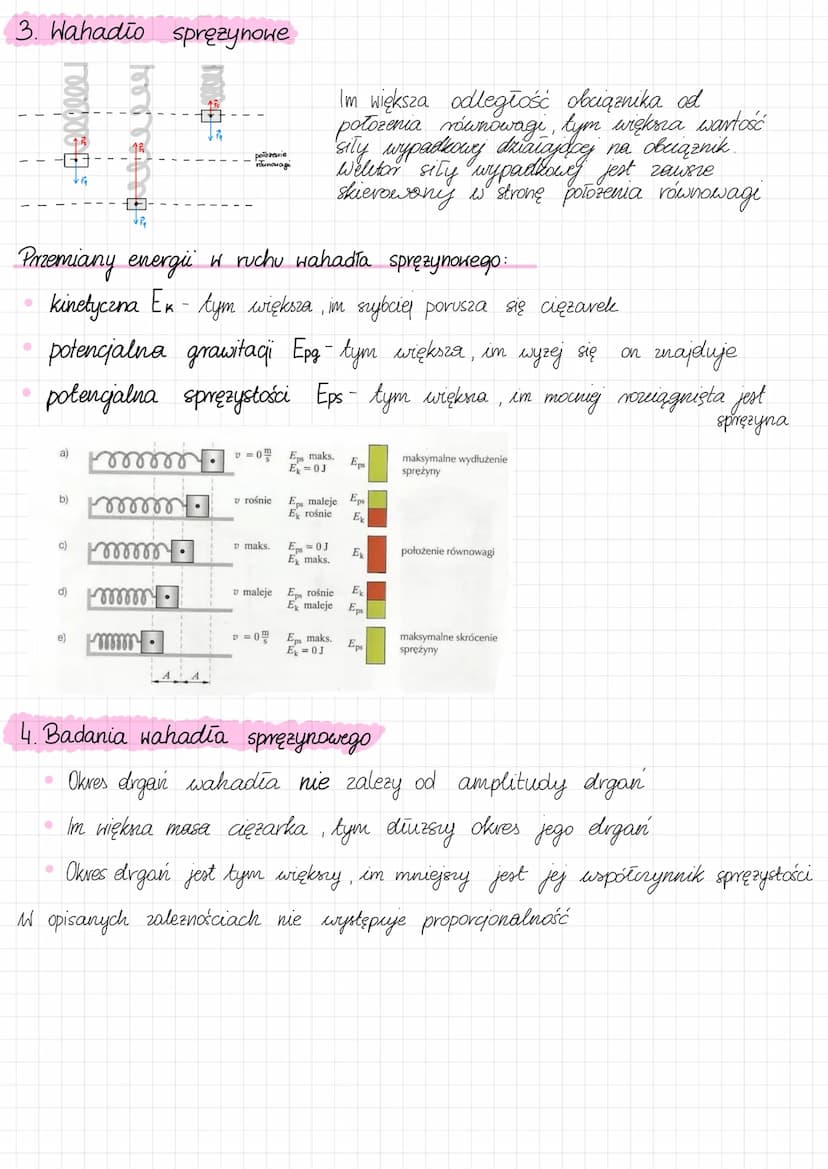 3. Wahadło sprężynowe
Im większa odległość obciążnika od
położenia równowagi, tym większa wartość
siły wypadkowej działającej na obciążnik.
Wektor siły wypadkowej jest zawsze
skierowany w stronę położenia równowagi
położenie
równowagi
Przemiany energii w ruchu wahadła sprężynowego:
kinetyczna Ek - tym większa, im szybciej porusza się ciężarek
potencjalna grawitacji Epg - tym większa, im wyżej się on znajduje
potencjalna sprężystości Eps - tym większa, im mocniej rozciągnięta jest
sprężyna
a) v = 0 m/s Eps maks. Ek = 0 J Eps maksymalne wydłużenie sprężyny
b) v rośnie Eps maleje Ek rośnie Eps Ek
c) v maks. Eps = 0 J Ek maks. Ek położenie równowagi
d) v maleje Eps rośnie Ek maleje Ek Eps
e) v = 0 m/s Eps maks. Ek = 0 J Eps maksymalne skrócenie sprężyny
A A
4. Badania wahadła sprężynowego
Okres drgań wahadła nie zależy od amplitudy drgań
Im większa masa ciężarka, tym dłuższy okres jego drgań
Okres drgań jest tym większy, im mniejszy jest jej współczynnik sprężystości
W opisanych zależnościach nie występuje proporcjonalność